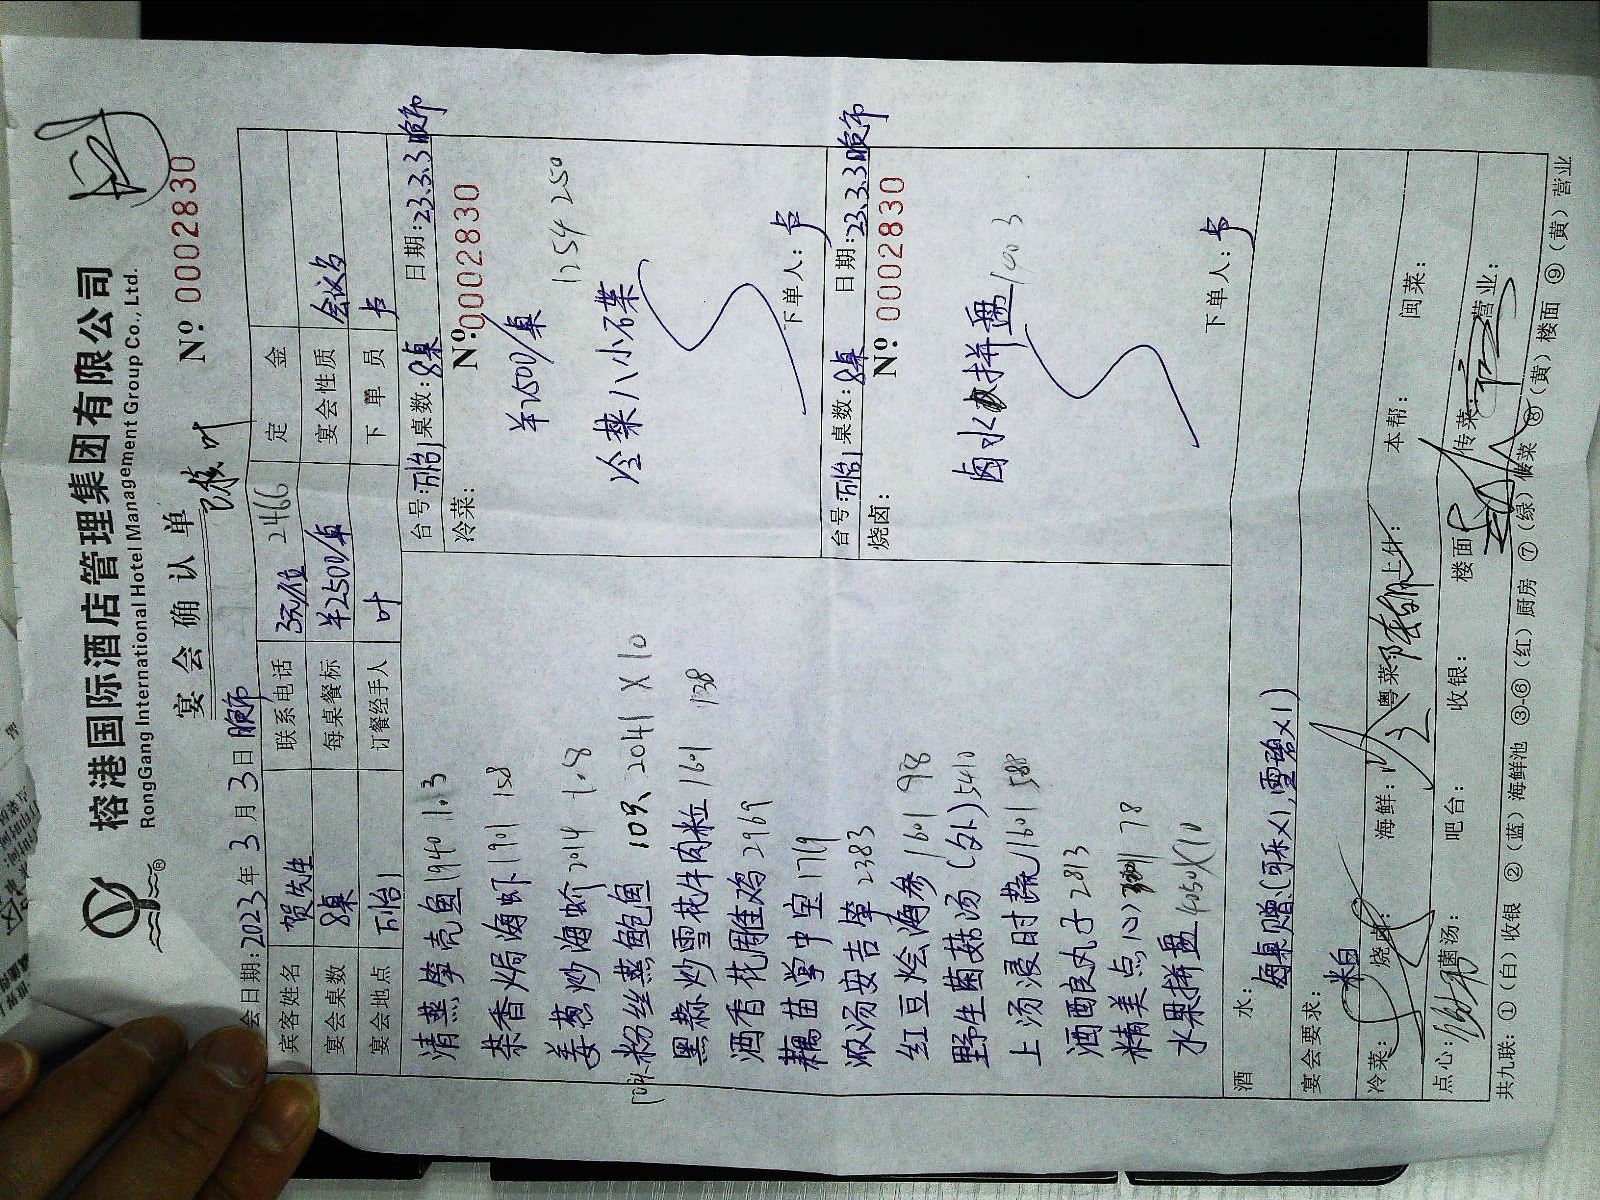 榕港国际酒店管理集团有限公司
RongGang International Hotel Management Group Co., Ltd.
宴会确认单
Nº 0002830
宴会日期:2023年3月3日晚市
宾客姓名 贺先生 联系电话 3元/位 2466 定金
宴会桌数 8桌 每桌餐标 ¥2500/桌 宴会性质 会议
宴会地点 订餐经手人 叶 下单员 卢
清蒸笋壳鱼 1940 1.3
茶香焗海虾 1901 158
姜葱炒海蚧 2014 1.8
粉丝蒸鲍鱼 10只 2041 X 10
黑蒜炒雪花牛肉粒 1601 138
酒香花雕鸡 2969
藕苗掌中宝 1719
浓汤安吉笋 2383
红豆烩海参 1601 98
野生菌菇汤(外) 5410
上汤浸时蔬 1601 588
酒酿丸子 2813
精美点心 78
水果拼盘 4050X10
台号: 桌数:8桌 日期:23.3.3晚市
冷菜:
Nº 0002830
¥2500/桌
冷菜八小碟 1254 250
下单人:卢
台号: 桌数:8桌 日期:23.3.3晚市
烧卤:
Nº 0002830
卤水拼盘 1003
下单人:卢
酒水:
每桌赠(可乐X1,雪碧X1)
宴会要求:
冷菜: 烧卤: 海鲜: 粤菜: 上什: 本帮: 闽菜:
点心: 菌汤: 吧台: 收银: 楼面: 传菜: 营业:
共九联:①(白)收银 ②(蓝)海鲜池 ③-⑥(红)厨房 ⑦(绿)传菜 ⑧(黄)楼面 ⑨(黄)营业